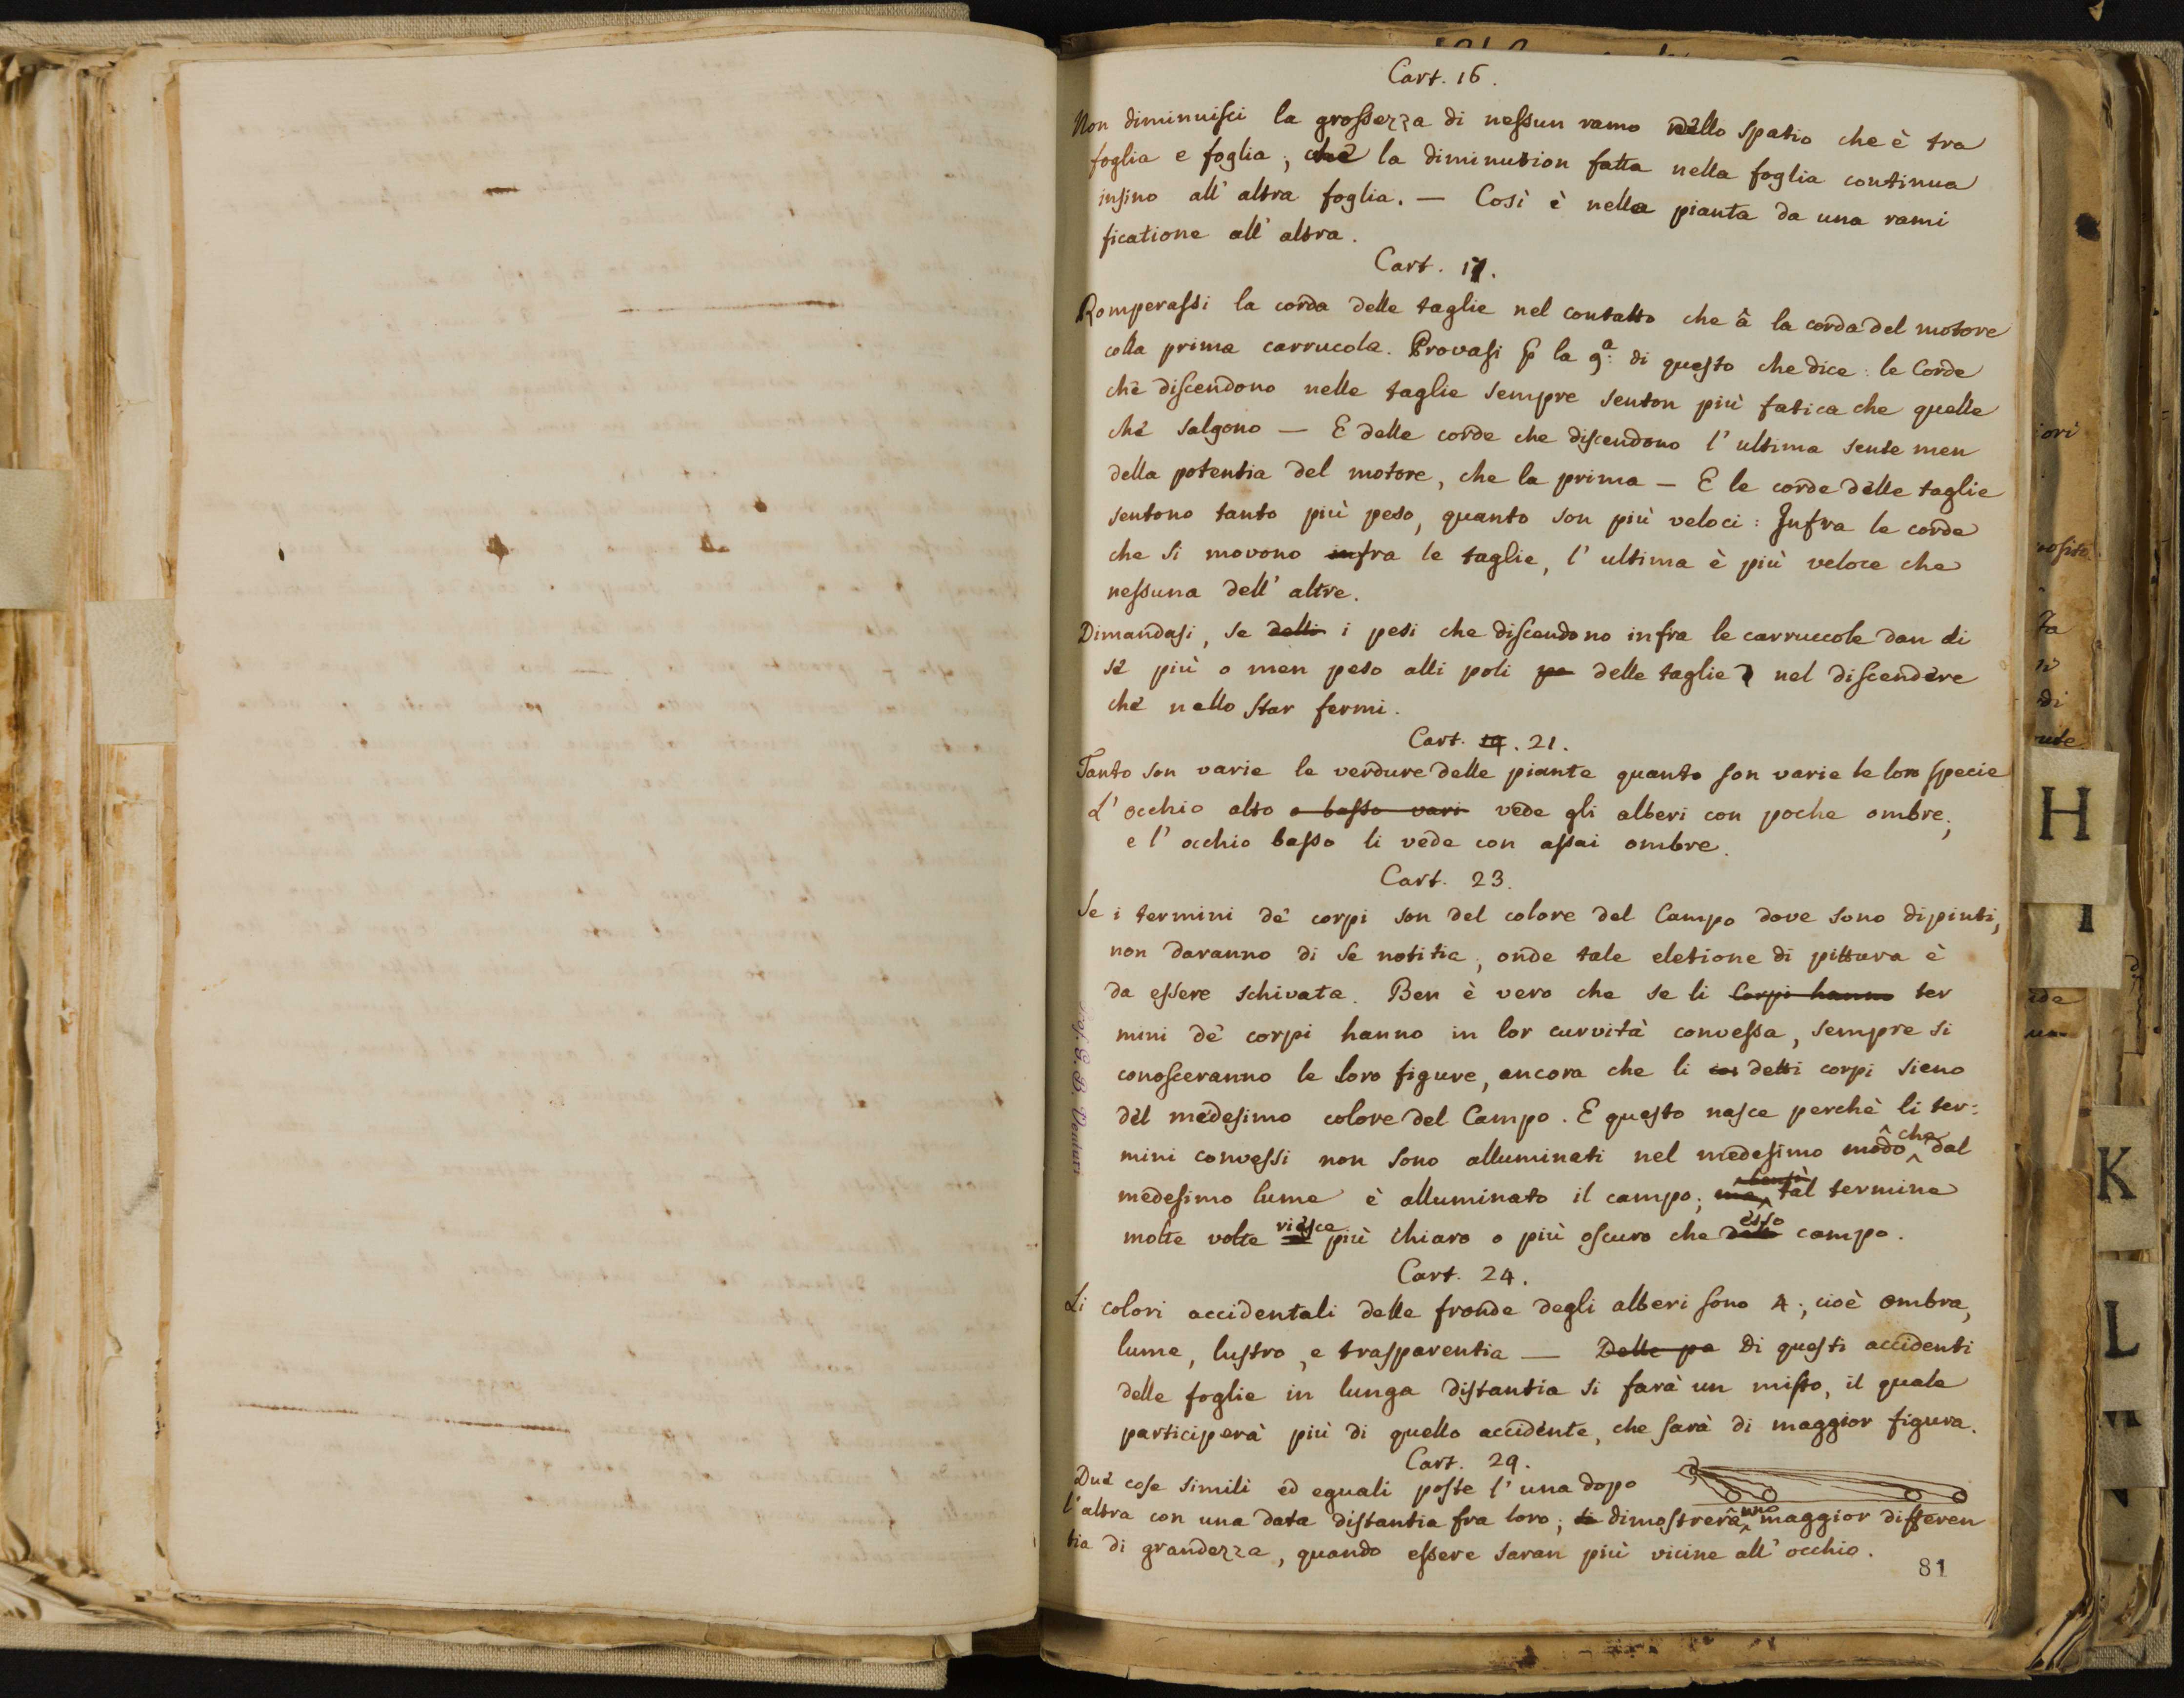 Cart. 16.
Non diminuisci la grossezza di nessun ramo nello spatio che è tra
foglia e foglia; che la diminution fatta nella foglia continua
insino all' altra foglia. — Così è nella pianta da una rami
ficatione all' altra.
Cart. 17.
Romperassi la corda delle taglie nel contatto che â la corda del motore
colla prima carrucola. Provasi p la 9.a di questo che dice: le Corde
che discendono nelle taglie sempre senton più fatica che quelle
che salgono — E delle corde che discendono l' ultima sente men
della potentia del motore, che la prima — E le corde delle taglie
sentono tanto più peso, quanto son più veloci: Infra le corde
che si movono infra le taglie, l' ultima è più veloce che
nessuna dell' altre.
Dimandasi, se delli i pesi che discendono infra le carrucole dan di
sè più o men peso alli poli pe delle taglie nel discendere
che nello star fermi.
Cart. 19. 21.
Tanto son varie le verdure delle piante quanto son varie le loro specie
L' occhio alto o basso vari vede gli alberi con poche ombre;
e l' occhio basso li vede con assai ombre.
Cart. 23.
Se i termini de' corpi son del colore del Campo dove sono dipinti,
non daranno di se notitia; onde tale eletione di pittura è
da essere schivata. Ben è vero che se li Corpi hanno ter
mini de' corpi hanno in lor curvità convessa, sempre si
conosceranno le loro figure, ancora che li detti corpi sieno
del medesimo colore del Campo. E questo nasce perchè li ter=
mini convessi non sono alluminati nel medesimo modo che dal
medesimo lume è alluminato il campo; ma bensì tal termine
molte volte riesce più chiaro o più oscuro che esso campo.
Cart. 24.
Li colori accidentali delle fronde degli alberi sono 4; cioè ombra,
lume, lustro, e trasparentia — Delle pa Di questi accidenti
delle foglie in lunga distantia si farà un misto, il quale
participerà più di quello accidente, che sarà di maggior figura.
Cart. 29.
Due cose simili ed eguali poste l' una dopo
l'altra con una data distantia fra loro; si dimostreranno maggior differen
tia di grandezza, quando essere saran più vicine all' occhio.
81
Prof. G. B. Venturi
H
I
K
L